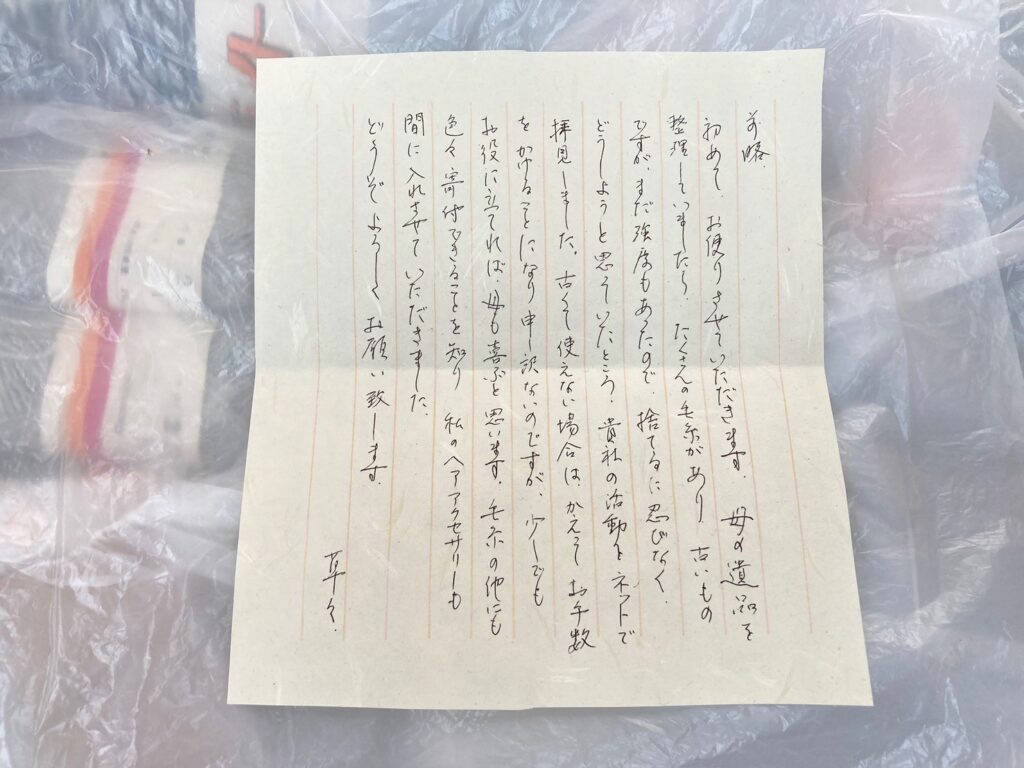 前略
初めて、お便りさせていただきます。母の遺品を
整理していましたら、たくさんの毛糸があり 古いもの
ですが、まだ強度もあったので、捨てるに忍びなく、
どうしようと思っていたところ、貴社の活動をネットで
拝見しました。古くて使えない場合は かえって お手数
をかけることになり申し訳ないのですが、少しでも
お役に立てれば、母も喜ぶと思います。毛糸の他にも
色々寄付できることを知り 私のヘアアクセサリーも
間に入れさせていただきました。
どうぞ よろしく お願い致します。
草々